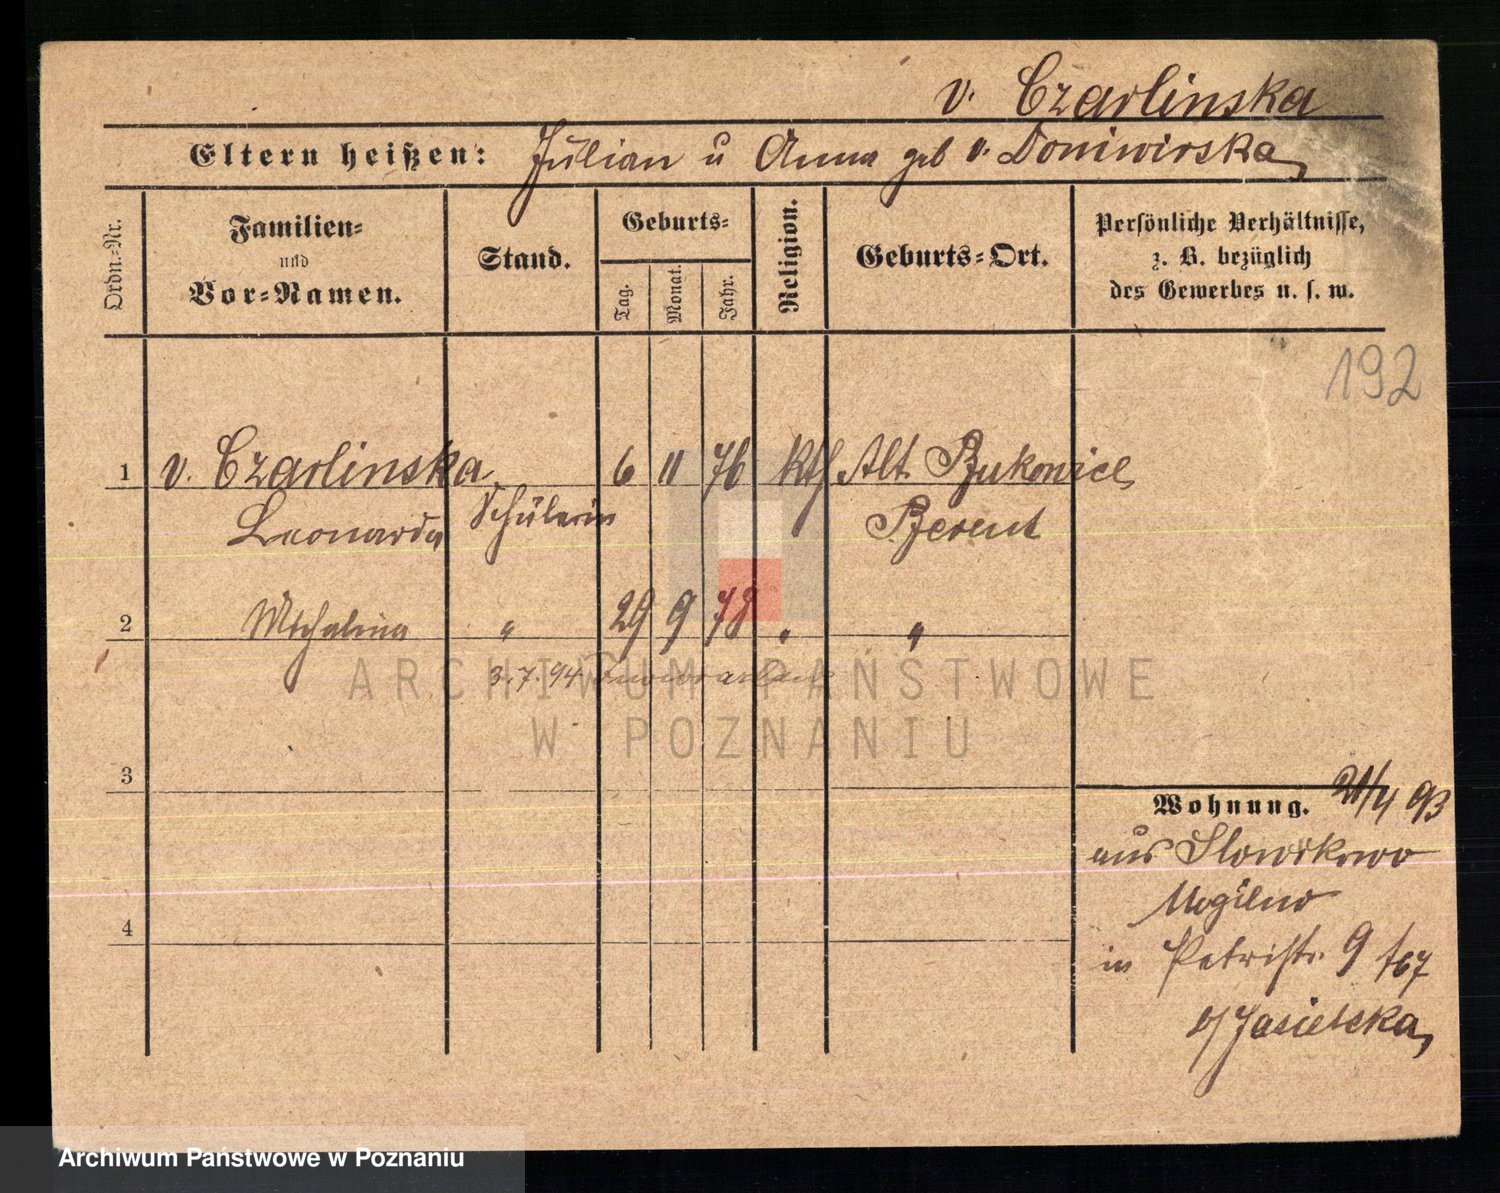 v. Czarlinska
Eltern heißen: Julian u Anna geb v. Doniwirska
Ordn.-Nr.
Familien-
und
Vor-Namen.
Stand.
Geburts-
Tag.
Monat.
Jahr.
Religion.
Geburts-Ort.
Persönliche Verhältnisse,
z. B. bezüglich
des Gewerbes u. s. w.
192
1 v. Czarlinska 6 11 76 kth Alt Bukowice
Leonarda Schülerin Berent
2 Michalina " 29 9 78 " "
3.7.94 Inowrazlaw
ARCHIWUM PAŃSTWOWE
W POZNANIU
3
Wohnung. 21/4 93
aus Slowikowo
Mogilno
in Petristr. 9
b/ Jasielska
4
Archiwum Państwowe w Poznaniu